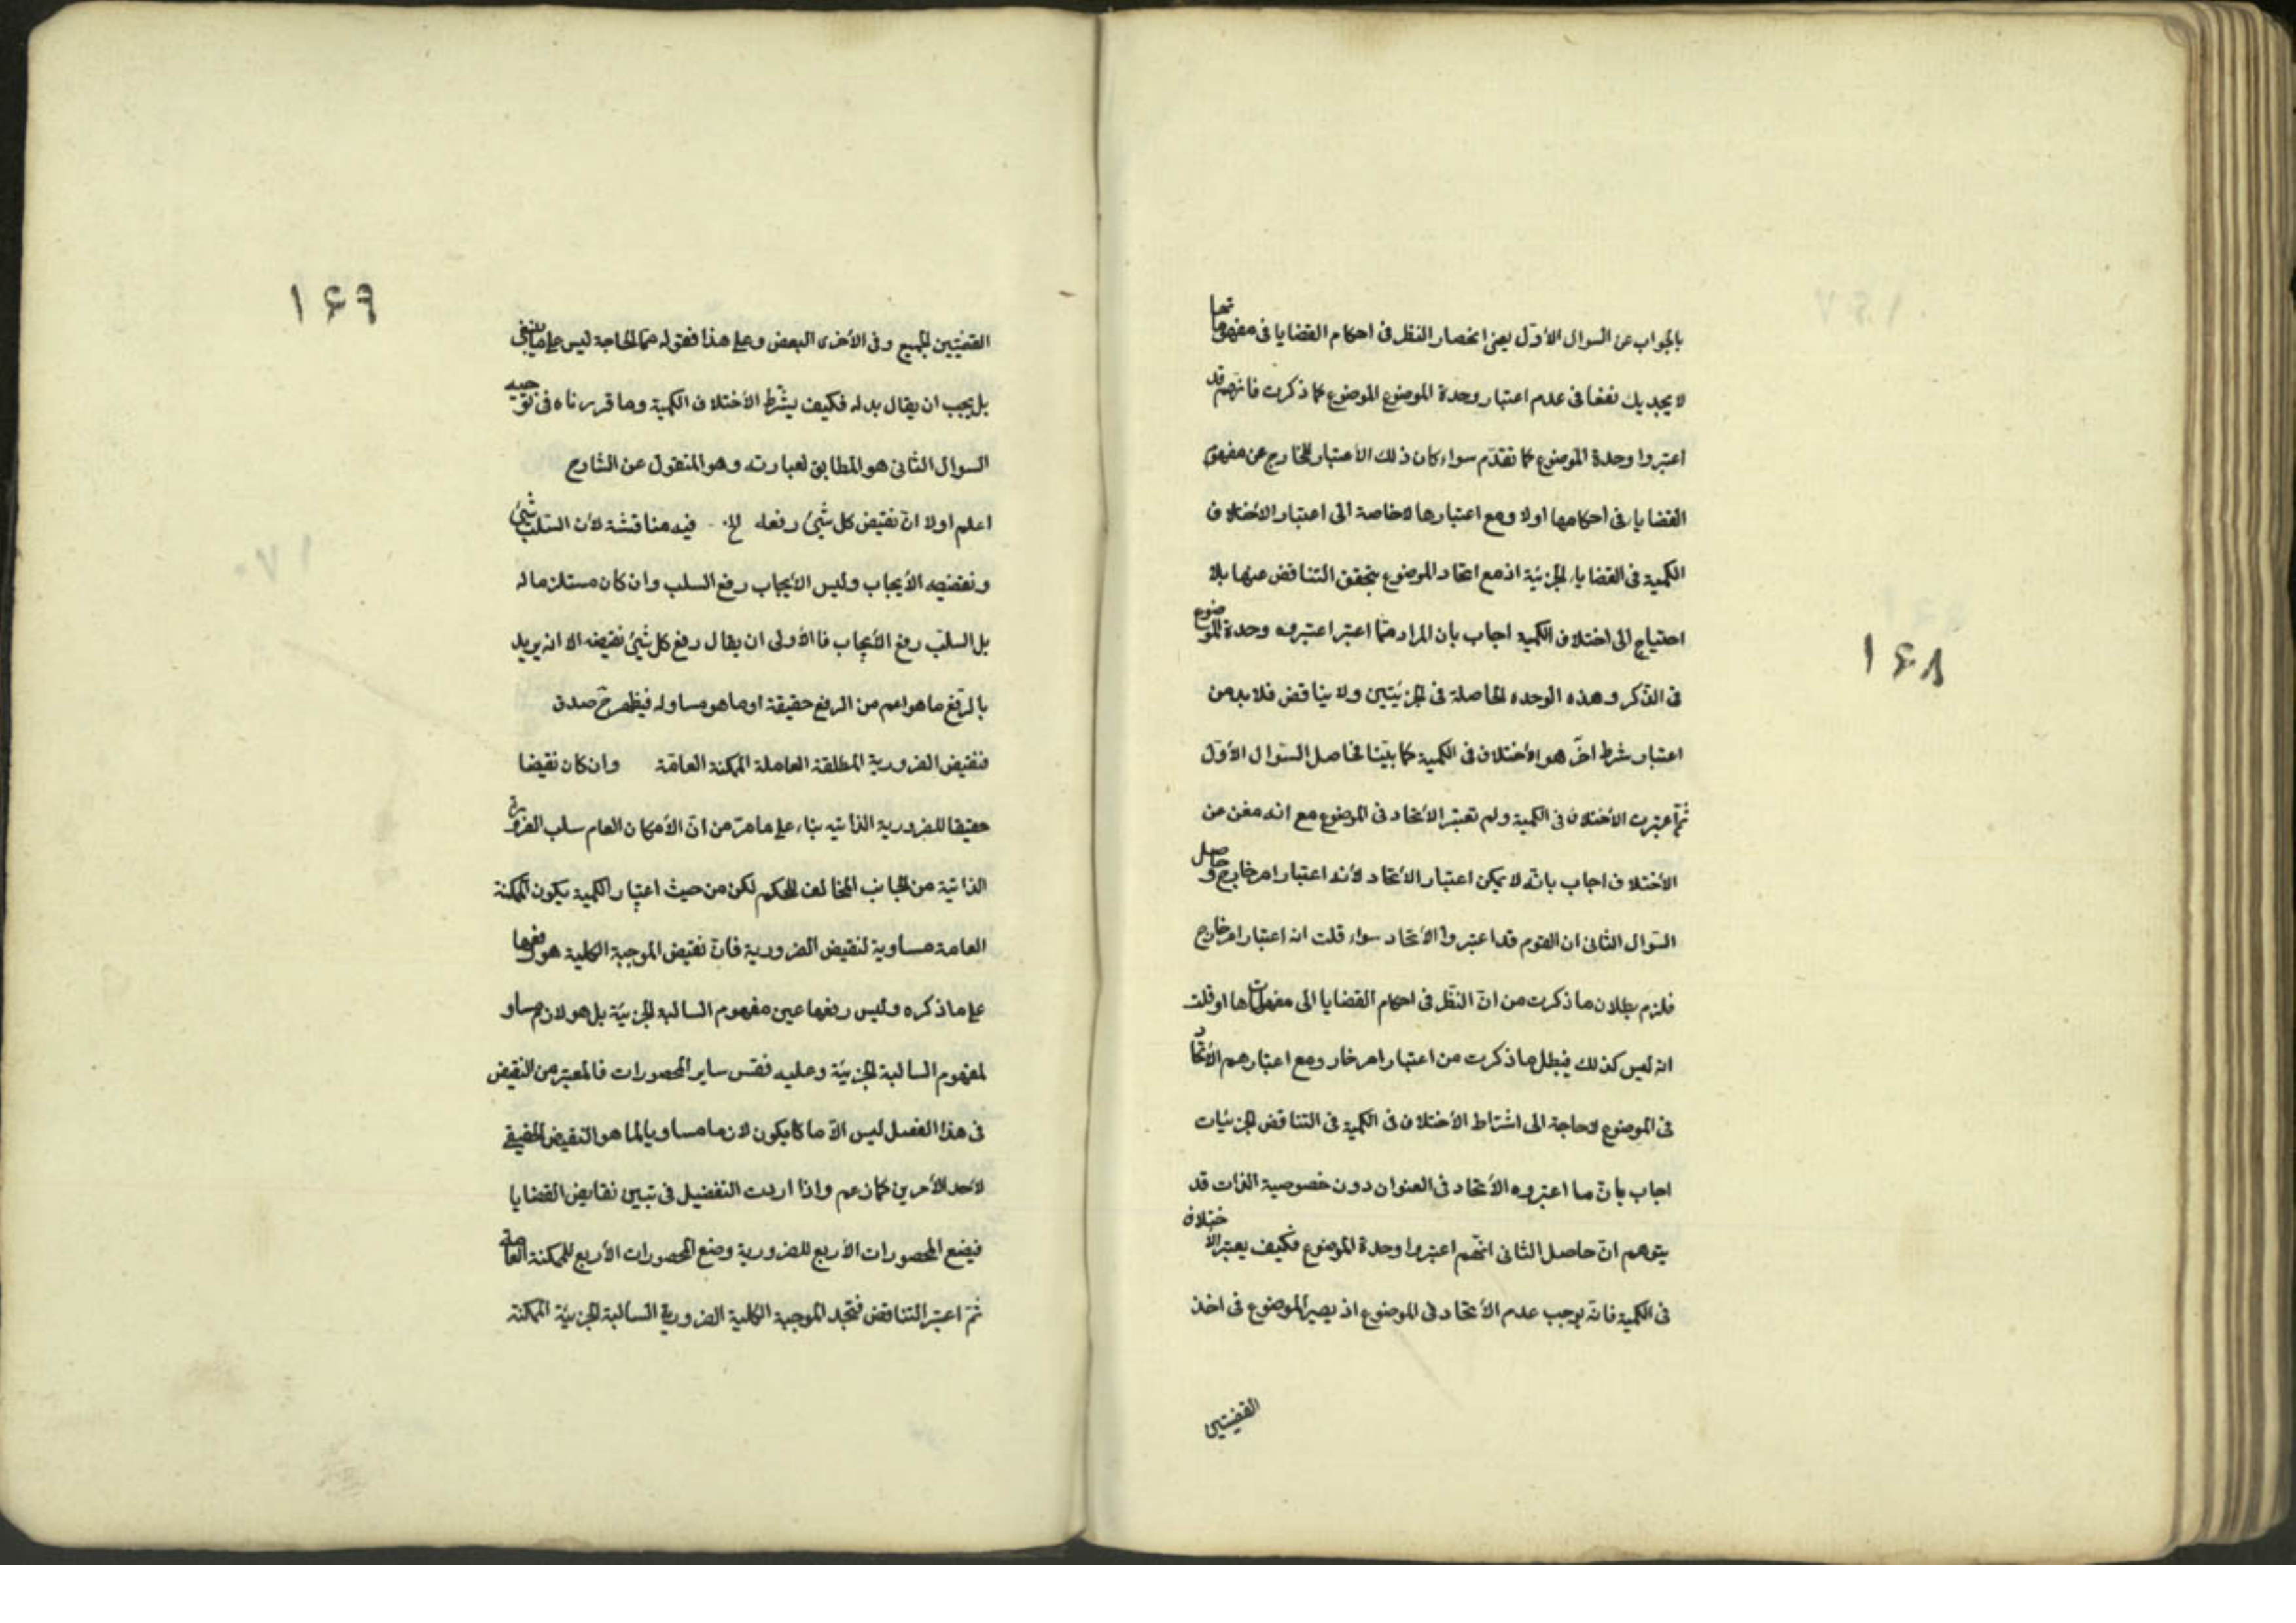 ١٦٨
بالجواب عن السوال الأوّل يعنى انحصار النظر فى احكام القضايا فى مفهوماتها
لا يجديك نفعا فى عدم اعتبار وحدة الموضوع الموضوع كما ذكرت فانهم قد
اعتبروا وحدة الموضوع كما تقدّم سواء كان ذلك الأعتبار للخارج عن مفهوم
القضايا فى احكامها اولا ومع اعتبارها لاخاصة الى اعتبار الأختلاف
الكمية فى القضايا الجزئية اذ مع اتحاد الموضوع يتحقق التناقض عنها بلا
احتياج الى اختلاف الكمية اجاب بان المراد متا اعتبر اعتبروه وحدة الموضوع
فى الذكر وهذه الوحده الحاصلة فى الجزئيتين ولا يناقض فلابد من
اعتبار شرط اخر هو الأختلاف فى الكمية كما بيّنا فحاصل السّوال الأوّل
ثمّ اعتبرت الأختلاف فى الكمية ولم تعتبر الأتحاد فى الموضوع مع انه مغن عن
الأختلاف اجاب بانّه لا يمكن اعتبار الأتحاد لأنه اعتبار امر خارج وحاصل
السّوال الثانى ان القوم قد اعتبروا الأتحاد سواء قلت انه اعتبار امر خارج
فلزم بطلان ما ذكرت من انّ النظر فى احكام القضايا الى مفهوماتها او قلت
انه ليس كذلك فبطل ما ذكرت من اعتبار امر خار ومع اعتبارهم الأتحاد
فى الموضوع لاحاجة الى اشتراط الأختلاف فى الكمية فى التناقض الجزئيات
اجاب بانّ ما اعتبروه الأتحاد فى العنوان دون خصوصية الذات قد
يتوهم انّ حاصل الثانى انهم اعتبروا وحدة الموضوع فكيف يعتبر الأختلاف
فى الكمية فانّه يوجب عدم الأتحاد فى الموضوع اذ يصير الموضوع فى احد
القضيتين
١٦٩
القضيتين الجميع وفى الأخرى البعض وعلى هذا فقوله فما الحاجة ليس على ما ينبغى
بل يجب ان يقال بدله فكيف يشترط الأختلاف الكمية وما قررناه فى توجيه
السوال الثانى هو المطابق لعبارته وهو المنقول عن الشارح
اعلم اولا انّ نقيض كل شئ رفعه الخ فيه مناقشة لأن السّلب شئ
ونقيضه الأيجاب وليس الأيجاب رفع السلب وان كان مستلزما له
بل السلب رفع الأيجاب فالأولى ان يقال رفع كل شئ نقيضه الا انه يريد
بالرّفع ما هو اعم من الرفع حقيقة او ما هو مساو له فيظهر ح صدق
فنقيض الضرورية المطلقة العاملة الممكنة العامّة وان كان نقيضا
حقيقا للضرورية الذاتيه بناء على ما مرّ من انّ الأمكان العام سلب الضرورة
الذاتية من الجانب المخالف للحكم لكن من حيث اعتبار الكمية يكون الممكنة
العامة مساوية لنقيض الضرورية فانّ نقيض الموجبة الكلية هو رفعها
على ما ذكره وليس رفعها عين مفهوم السالبة الجزئيّة بل هو لازم مساو
لمفهوم السالبة الجزئيّة وعليه فقس ساير المحصورات فالمعتبر من النقيض
فى هذا الفصل ليس الّا ما يكون لازما مساويا لما هو النقيض الحقيقى
لأحد الأمرين كما زعم واذا اردت التفضيل فى تبيين نقايض القضايا
فيضع المحصورات الأربع للضرورية وضع المحصورات الأربع للممكنة العامة
ثمّ اعتبر التناقض فتجد الموجبة الكلية الضرورية السالبة الجزئيّة الممكنة